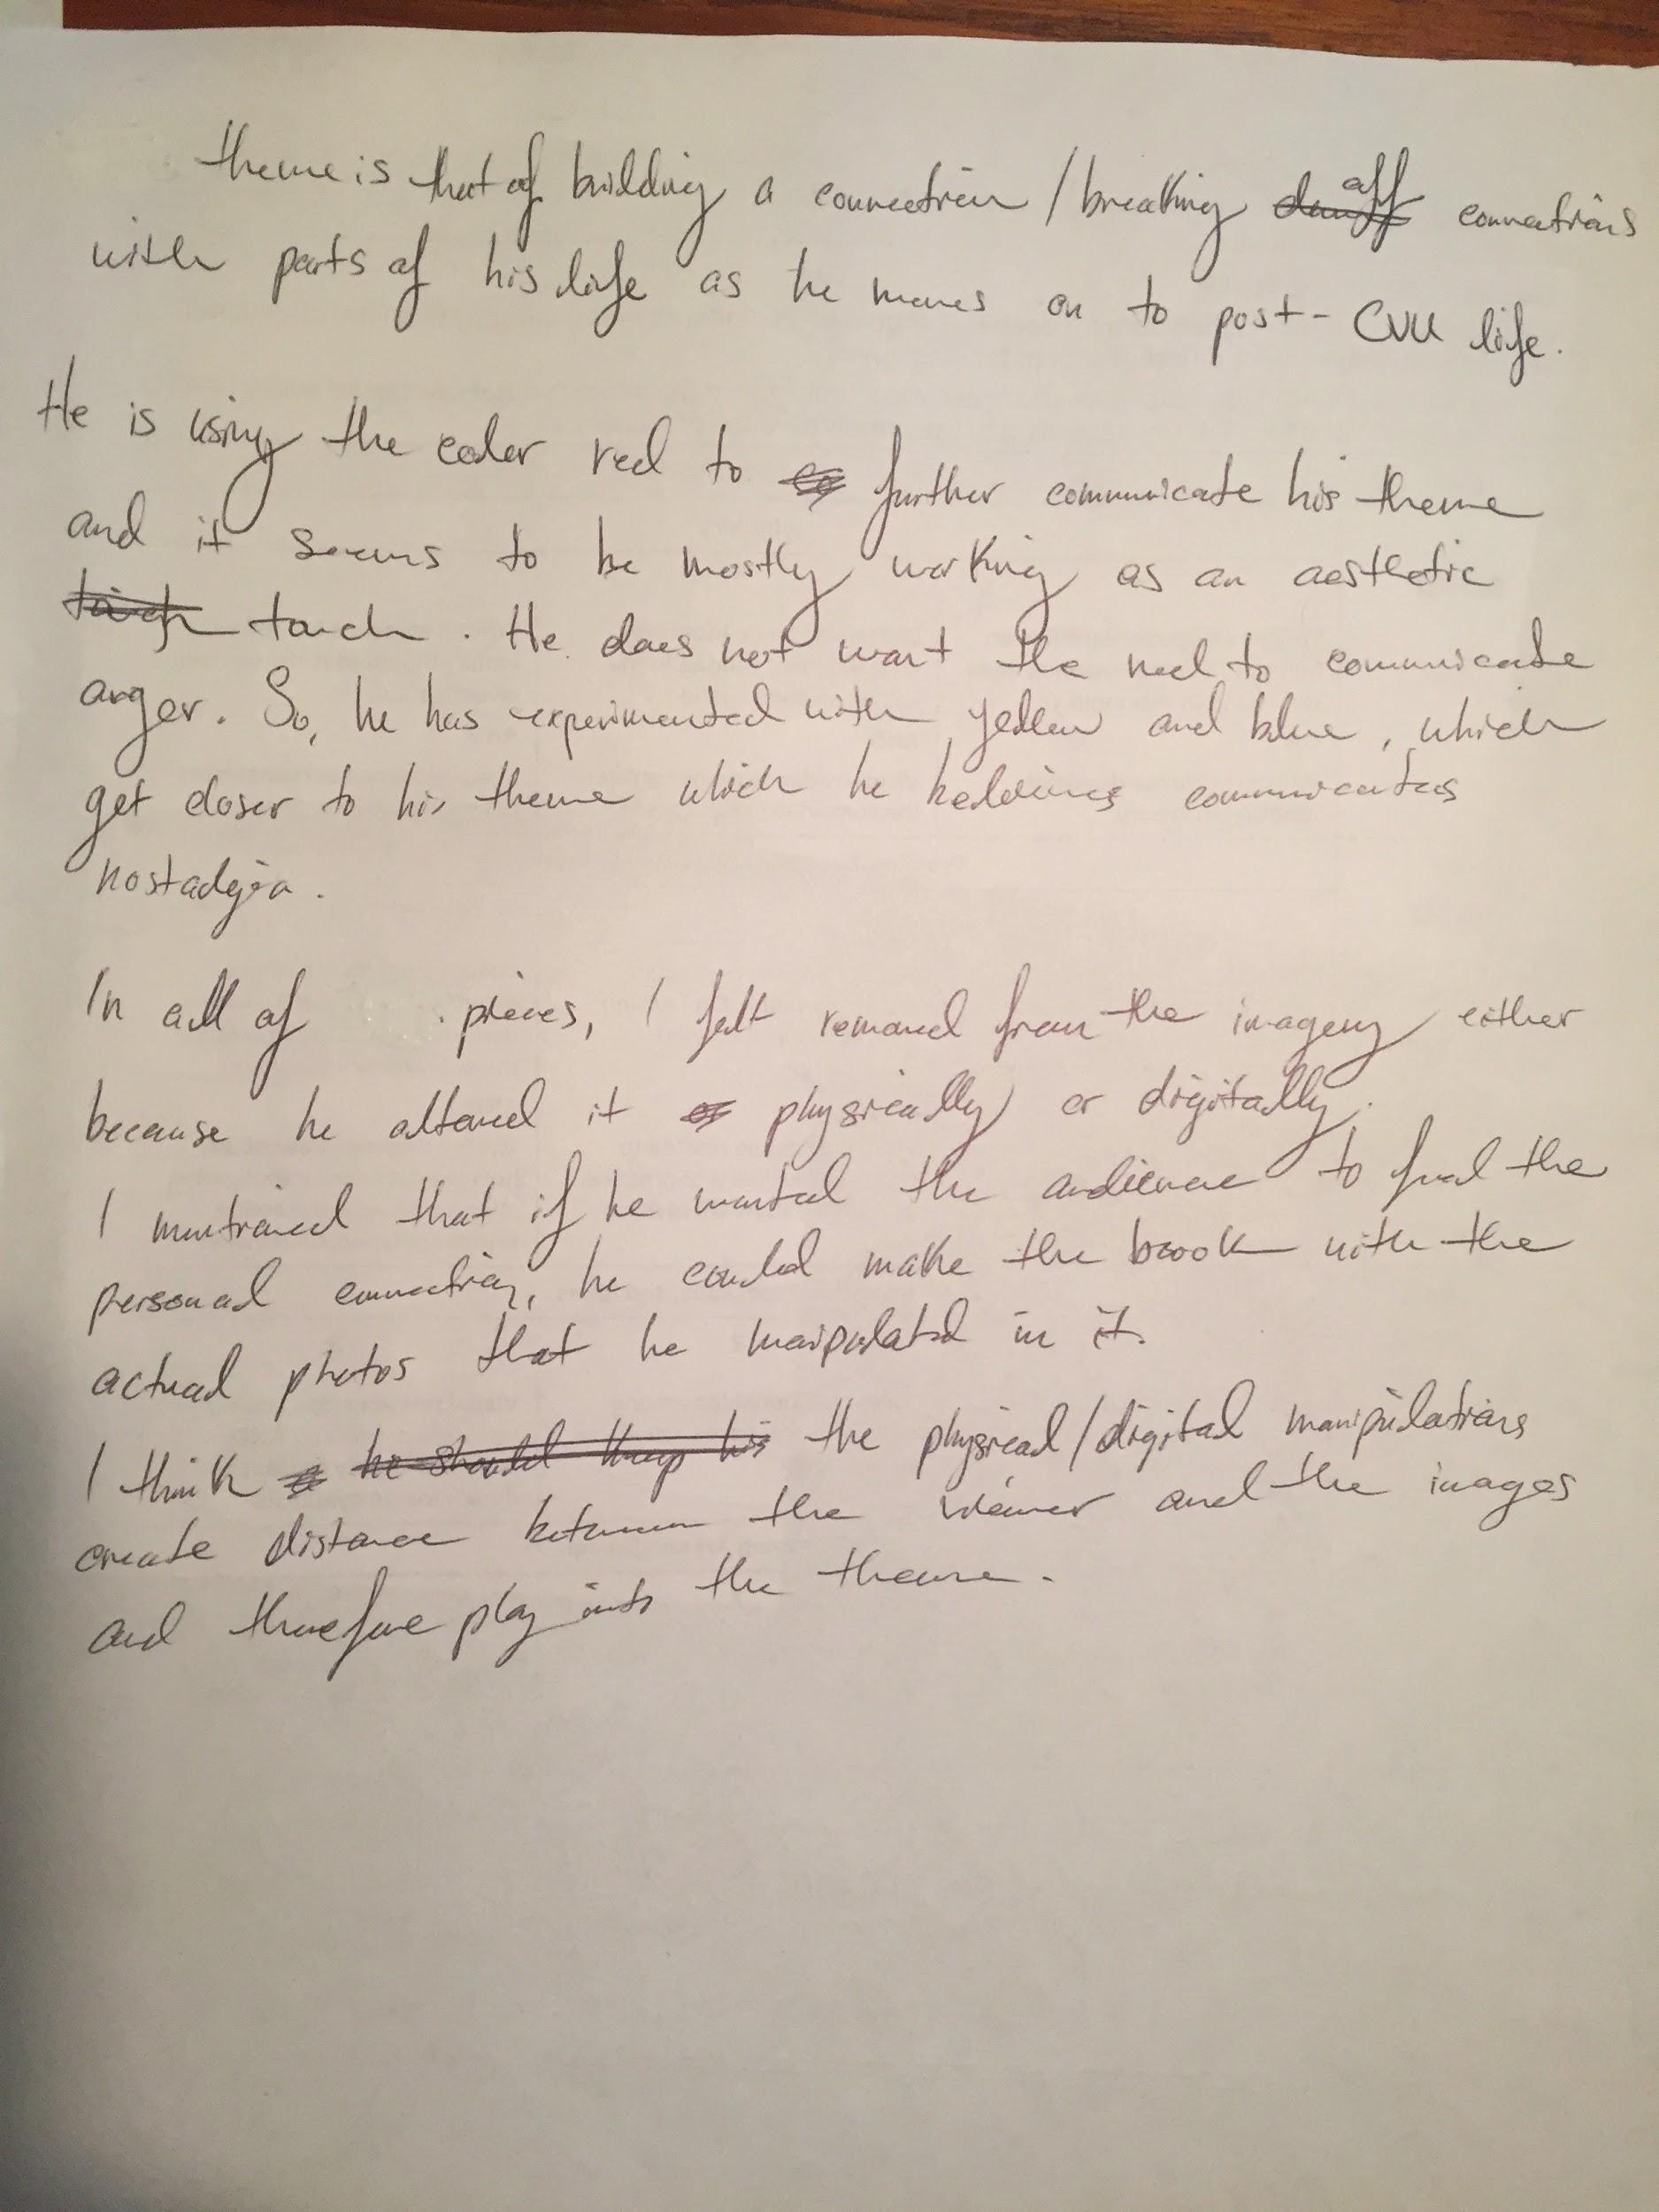 theme is that of building a connection / breaking off connections
with parts of his life as he moves on to post-CVU life.
He is using the color red to further communicate his theme
and it seems to be mostly working as an aesthetic
touch. He does not want the red to communicate
anger. So, he has experimented with yellow and blue, which
get closer to his theme which he believes communicates
nostalgia.
In all of pieces, I felt removed from the imagery either
because he altered it physically or digitally.
I mentioned that if he wanted the audience to feel the
personal connection, he could make the book with the
actual photos that he manipulated in it.
I think he should keep his the physical/digital manipulations
create distance between the viewer and the images
and therefore play into the theme.